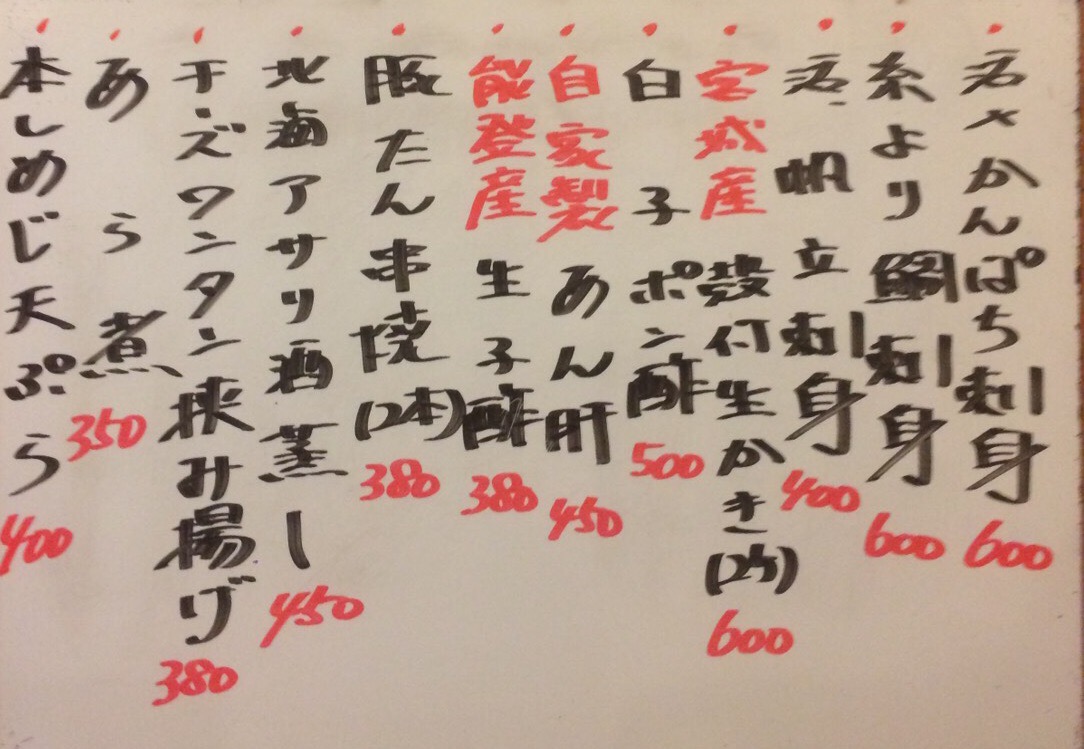 活〆かんぱち刺身 600
糸より鯛刺身 600
活帆立刺身 400
宮城産殻付生かき(2ケ) 600
白子ポン酢 500
自家製あん肝 450
能登産生子酢 380
豚たん串焼(2本) 380
北海アサリ酒蒸し 450
チーズワンタン挟み揚げ 380
あら煮 350
本しめじ天ぷら 400